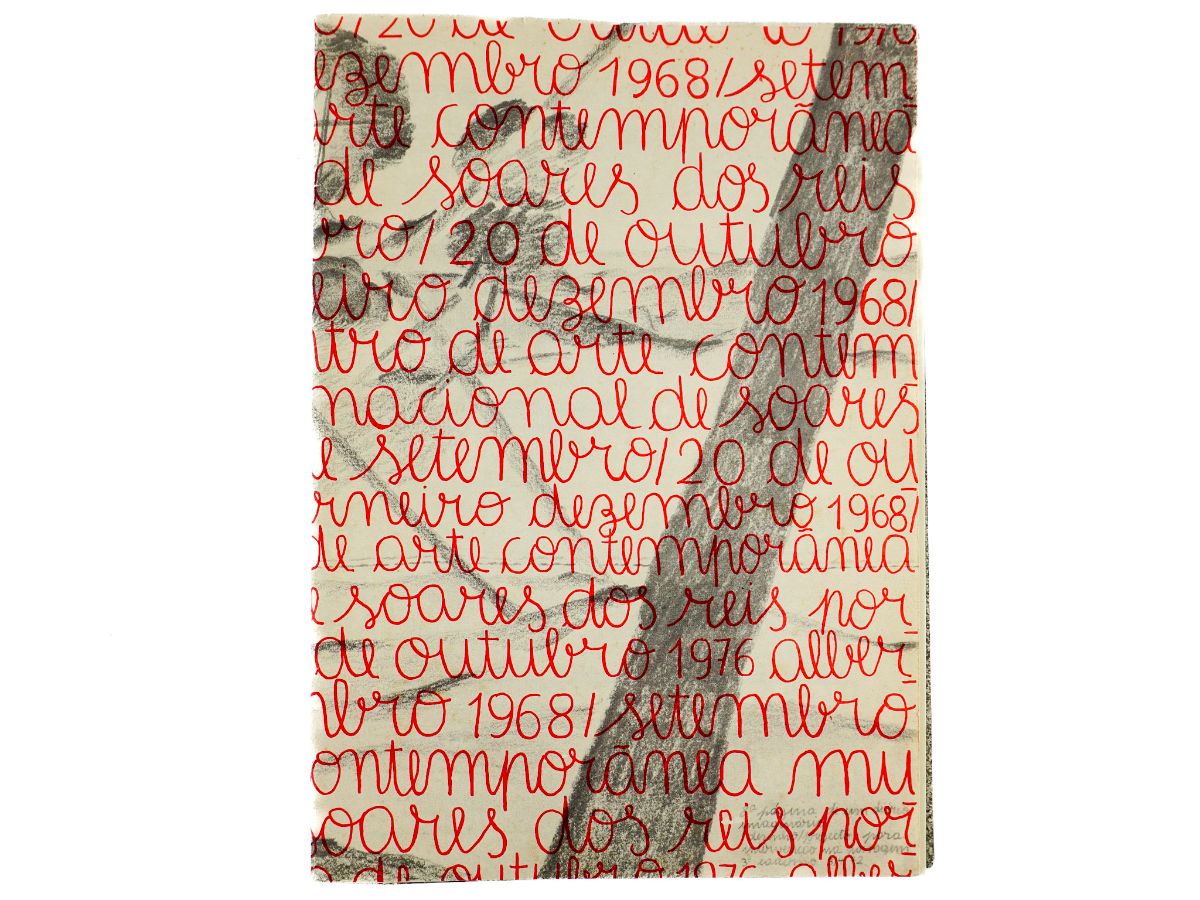 /20 de
ezembro 1968/setem
arte contemporânea
de soares dos reis
bro/20 de outubro
eiro dezembro 1968/
tro de arte contem
nacional de soares
e setembro/20 de ou
rneiro dezembro 1968/
de arte contemporânea
e soares dos reis por
de outubro 1976 alber
mbro 1968/setembro
contemporânea mu
soares dos reis por
de outubro 1976 alber